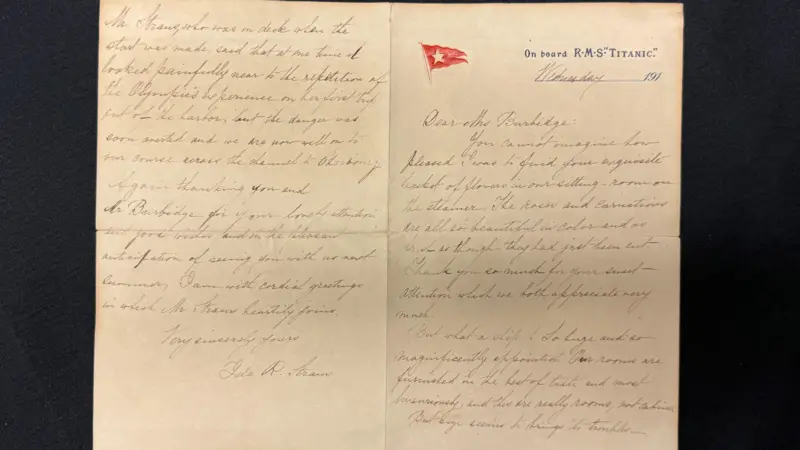 On board R·M·S·"TITANIC."
Wednesday 191
Dear Mrs Burbidge:
You cannot imagine how
pleased I was to find your exquisite
basket of flowers in our sitting-room on
the steamer. The roses and carnations
are all so beautiful in color and as
as though they had just been cut.
Thank you so much for your sweet
attention which we both appreciate very
much.
But what a ship! So huge and so
magnificently appointed. Our rooms are
furnished in the best of taste and most
luxuriously and they are really rooms, not cabins.
But size seems to bring its troubles—
Mr. Straus, who was on deck when the
start was made, said that at one time it
looked painfully near to the repetition of
the Olympic's experience on her first trip
out of the harbor, but the danger was
soon averted and we are now well on to
our course across the channel to Cherbourg.
Again thanking you and
Mr Burbidge for your lovely attention
and good wishes and in the pleasant
anticipation of seeing you with us next
summer, I am with cordial greetings
in which Mr Straus heartily joins,
Very sincerely yours
Ida R. Straus